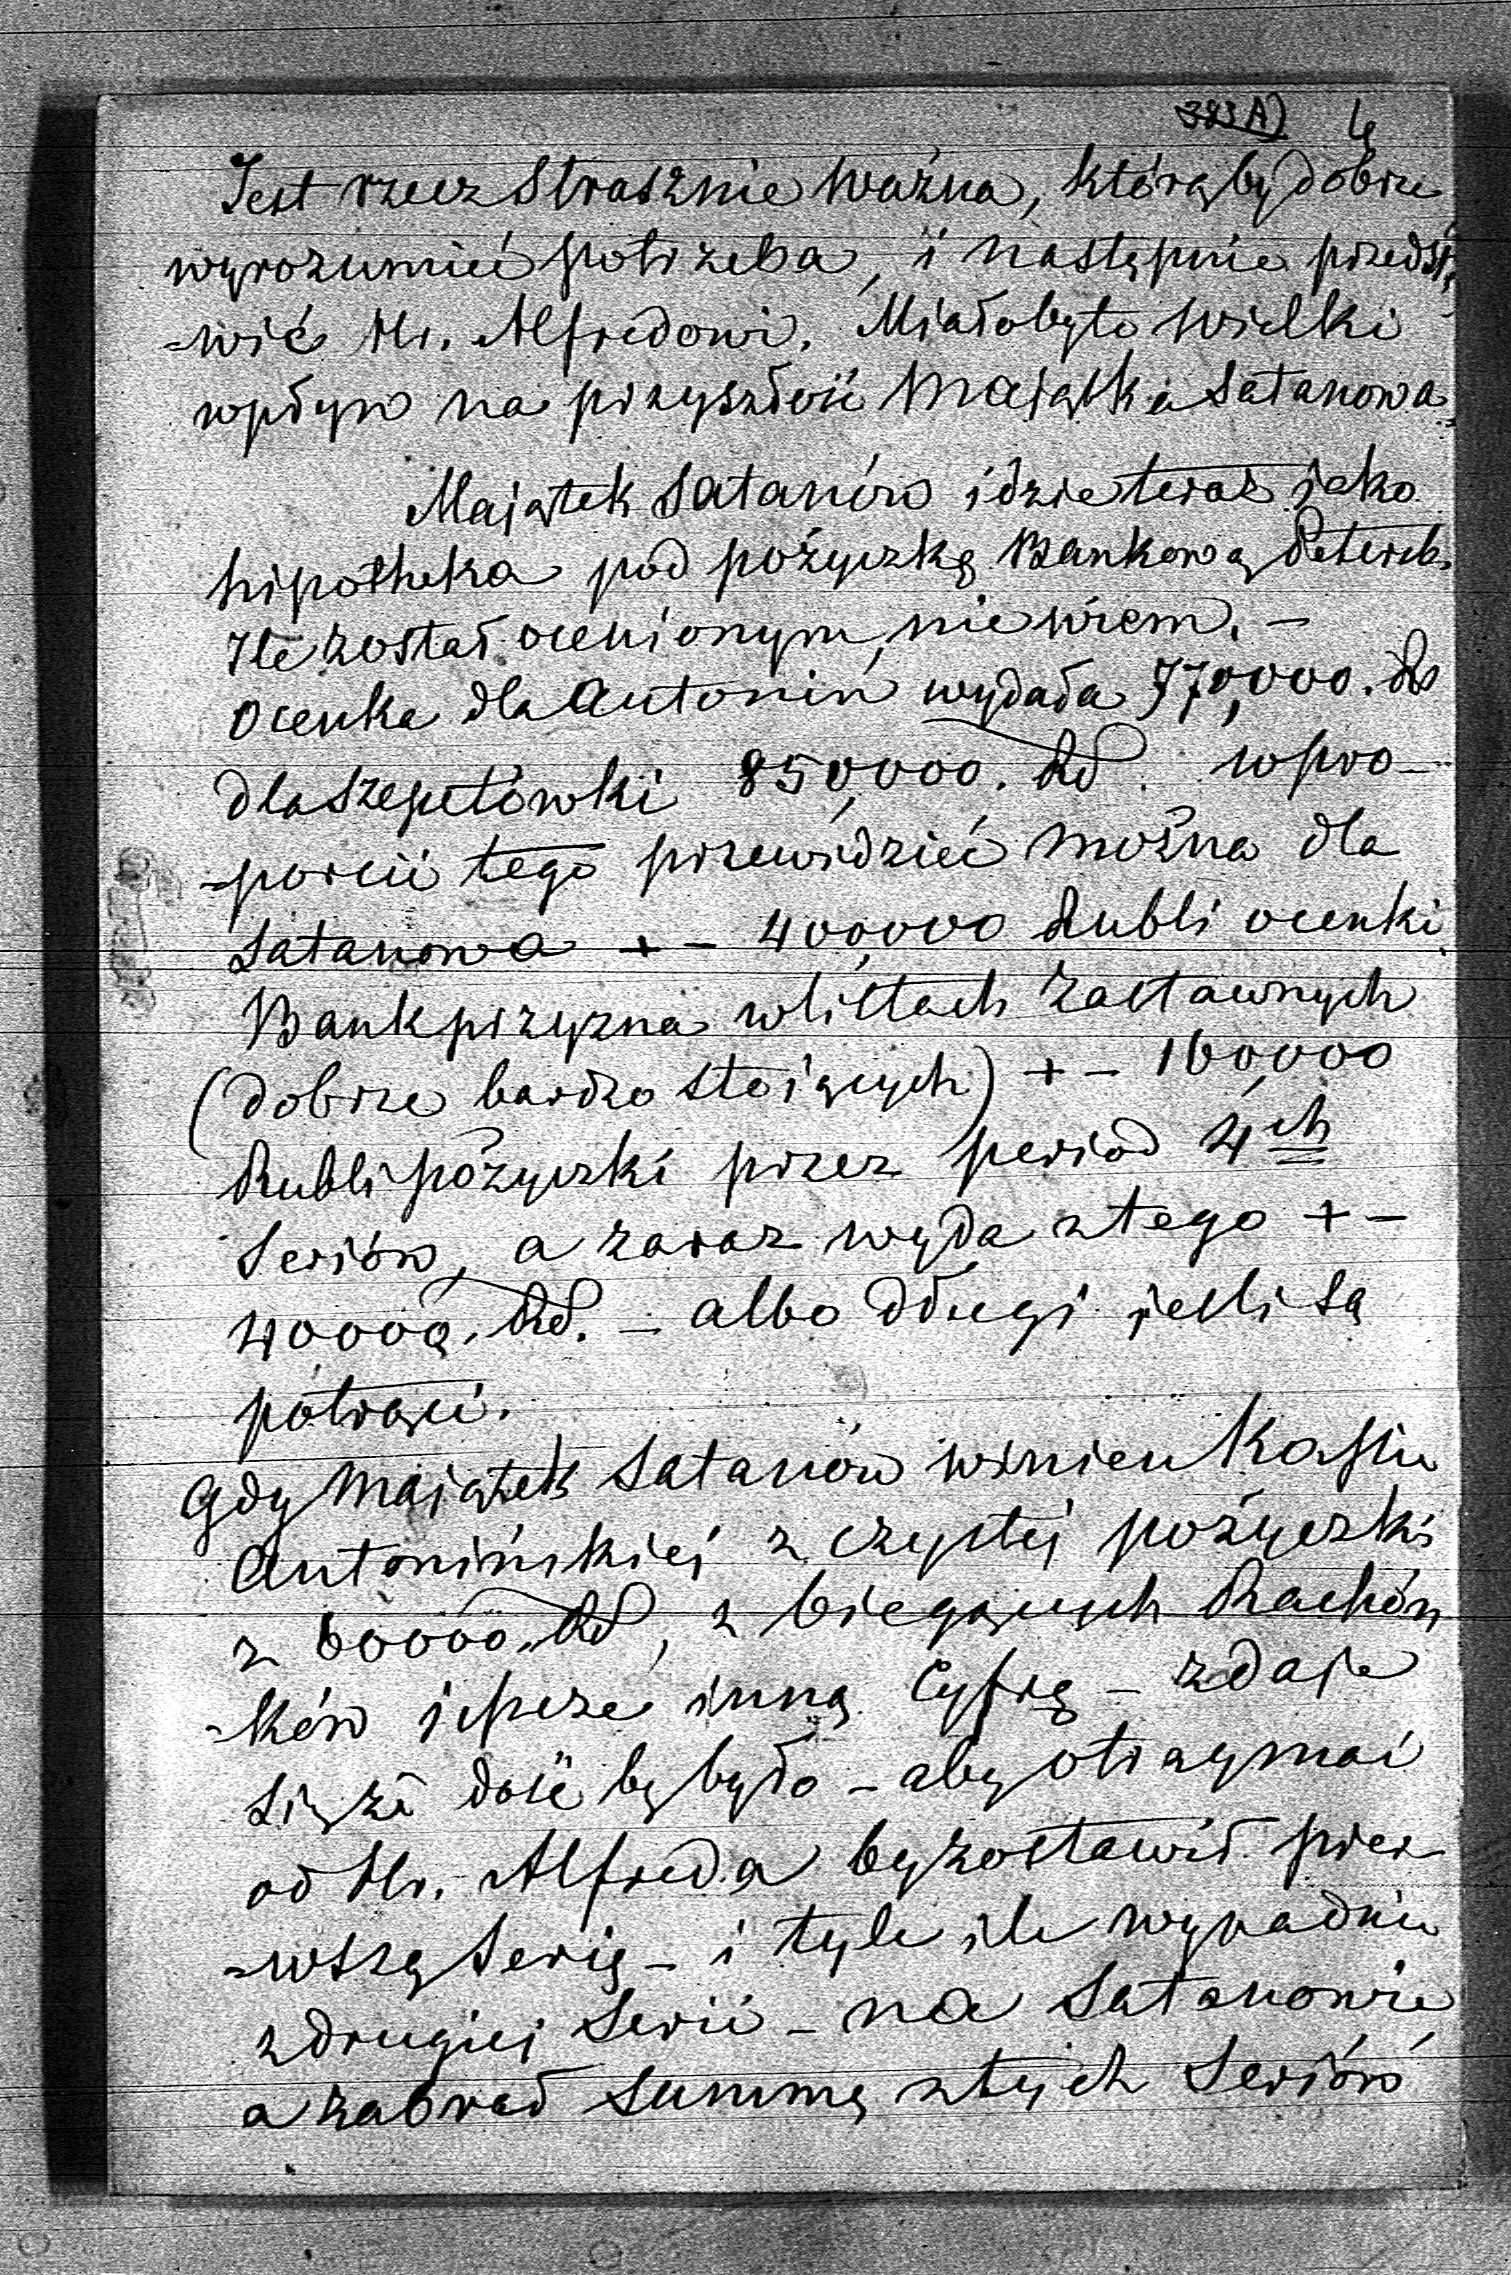 383A)
Jest rzecz Strasznie Ważna, którąby dobrze
wyrozumieć potrzeba, i następnie przedsta
-wić Hr. Alfredowi. Miałobyto wielki
wpływ na przyszłość Majątku Satanowa.
Majątek Satanów idzie teraz jako
hipotheka pod pożyczkę Bankową Petersb.
Ile został ocenionym, nie wiem. –
Ocenka dla Antonin wydała 770,000. Rs
dla Szepetówki 850,000. Rs. w pro-
-porcii tego przewidzieć można dla
Satanowa + – 400,000 Rubli ocenki.
Bank przyzna w listach Zastawnych
(dobrze bardzo stojących) + – 160,000
Rubli pożyczki przez period 4ch
Seriów, a zaraz wyda z tego + –
40000. Rs. – albo długi jeśli są
potrąci.
Gdy Majątek Satanów winien Kassie
Antonińskiej z czystej pożyczki
z 60000. Rs, z biegących Rachón
-ków jeszcze inną Cyfrę – zdaje
się że dość by było – aby otrzymać
od Hr. Alfreda by zostawił pier
-wszą Serię – i tyle ile wypadnie
z drugiej Serii – na Satanowie
a zabrał Summę z tych Seriów